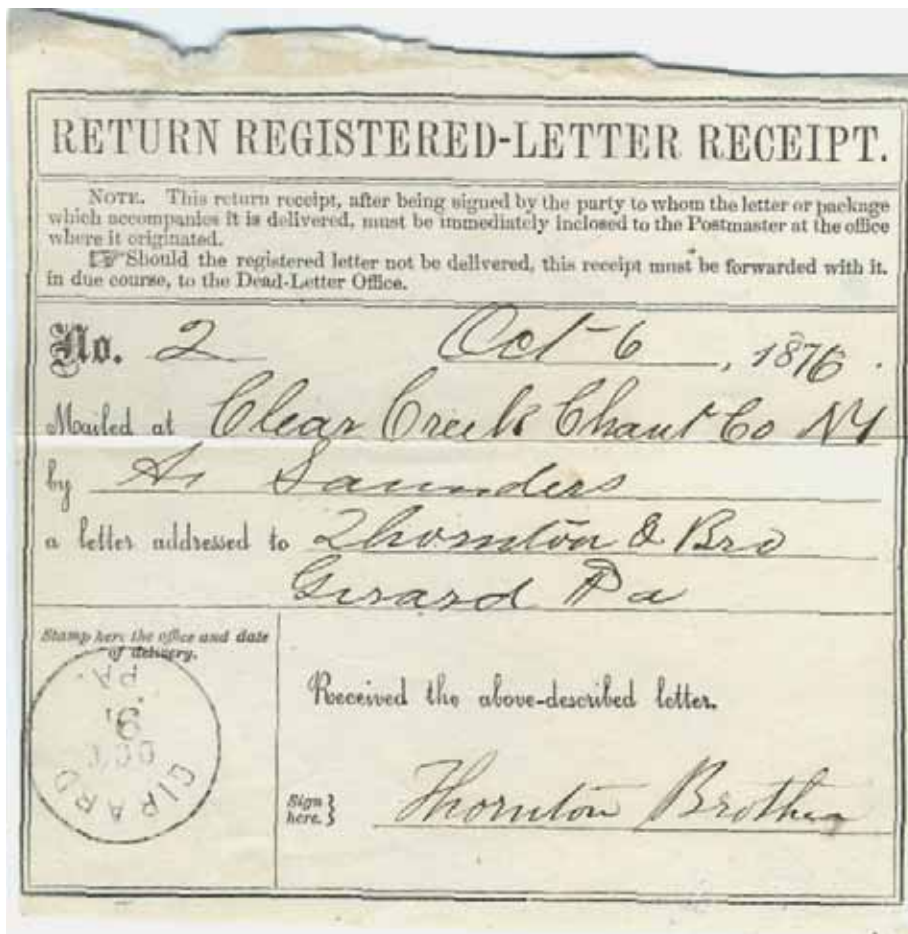 RETURN REGISTERED-LETTER RECEIPT.
NOTE. This return receipt, after being signed by the party to whom the letter or package
which accompanies it is delivered, must be immediately inclosed to the Postmaster at the office
where it originated.
☞Should the registered letter not be delivered, this receipt must be forwarded with it.
in due course, to the Dead-Letter Office.
No. 2 Oct 6, 1876.
Mailed at Clear Creek Chaut Co NY
by Saunders
a letter addressed to Thornton & Bro
Girard Pa
Stamp here the office and date
of delivery.
GIRARD
OCT
PA.
Received the above-described letter.
Sign here. } Thornton Brothers